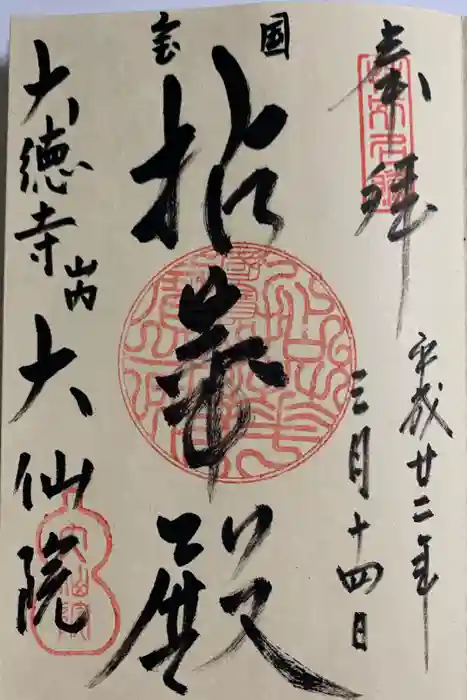 奉拝
平成廿二年
三月十四日
国宝
拈華殿
大徳寺山内大仙院
大仙院